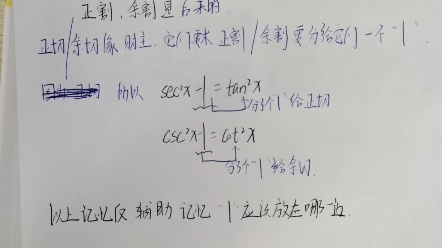 正割、余割是后来的
正切/余切像 明主,它们要求 正割/余割要分给它们一个"1".
所以 sec²x-1=tan²x
分个"1"给正切
csc²x-1=cot²x
分个"1"给余切.
以上记忆仅 辅助 记忆"1"应该放在哪一边.